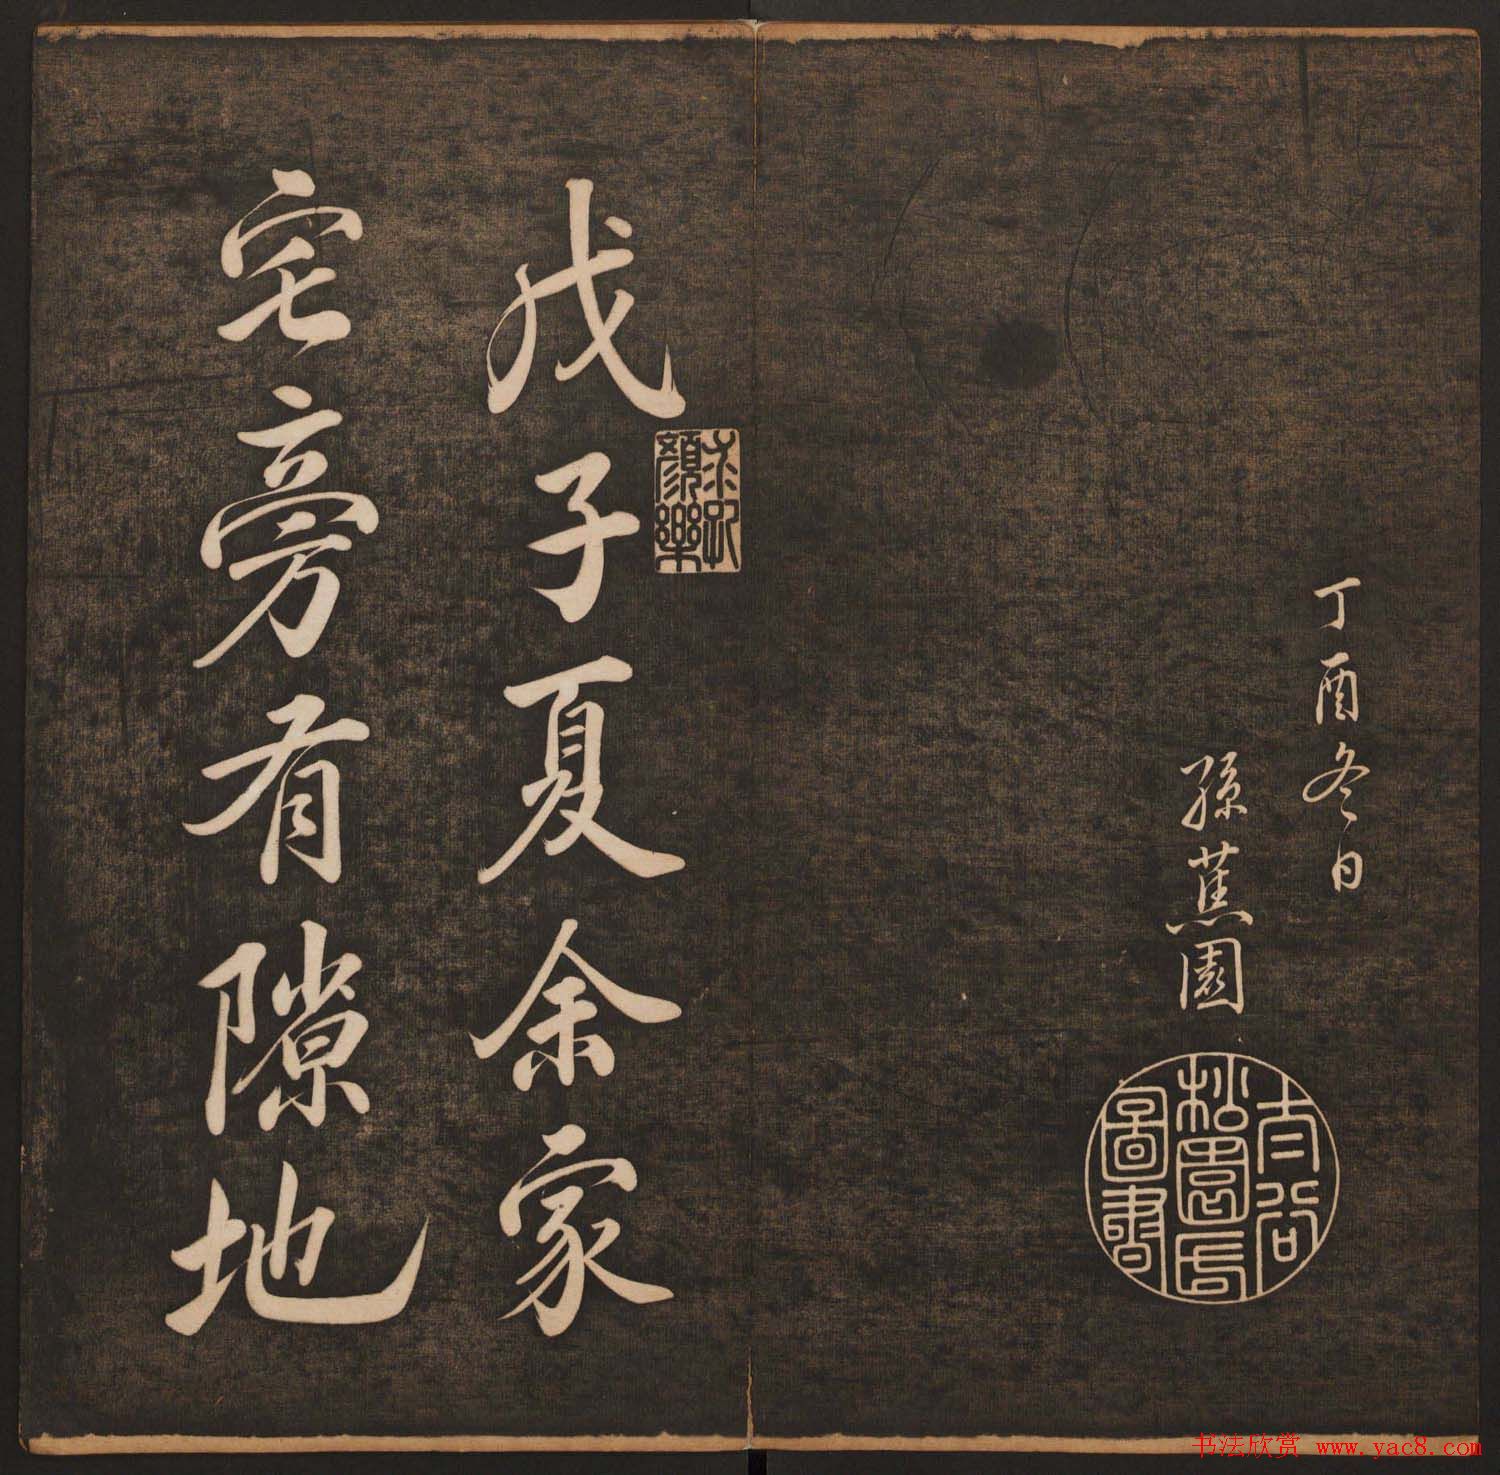 丁酉冬日
孫蕉園
松園居
圖書
顏樂
戊子夏余家
宅旁有隙地
书法欣赏 www.yac8.com